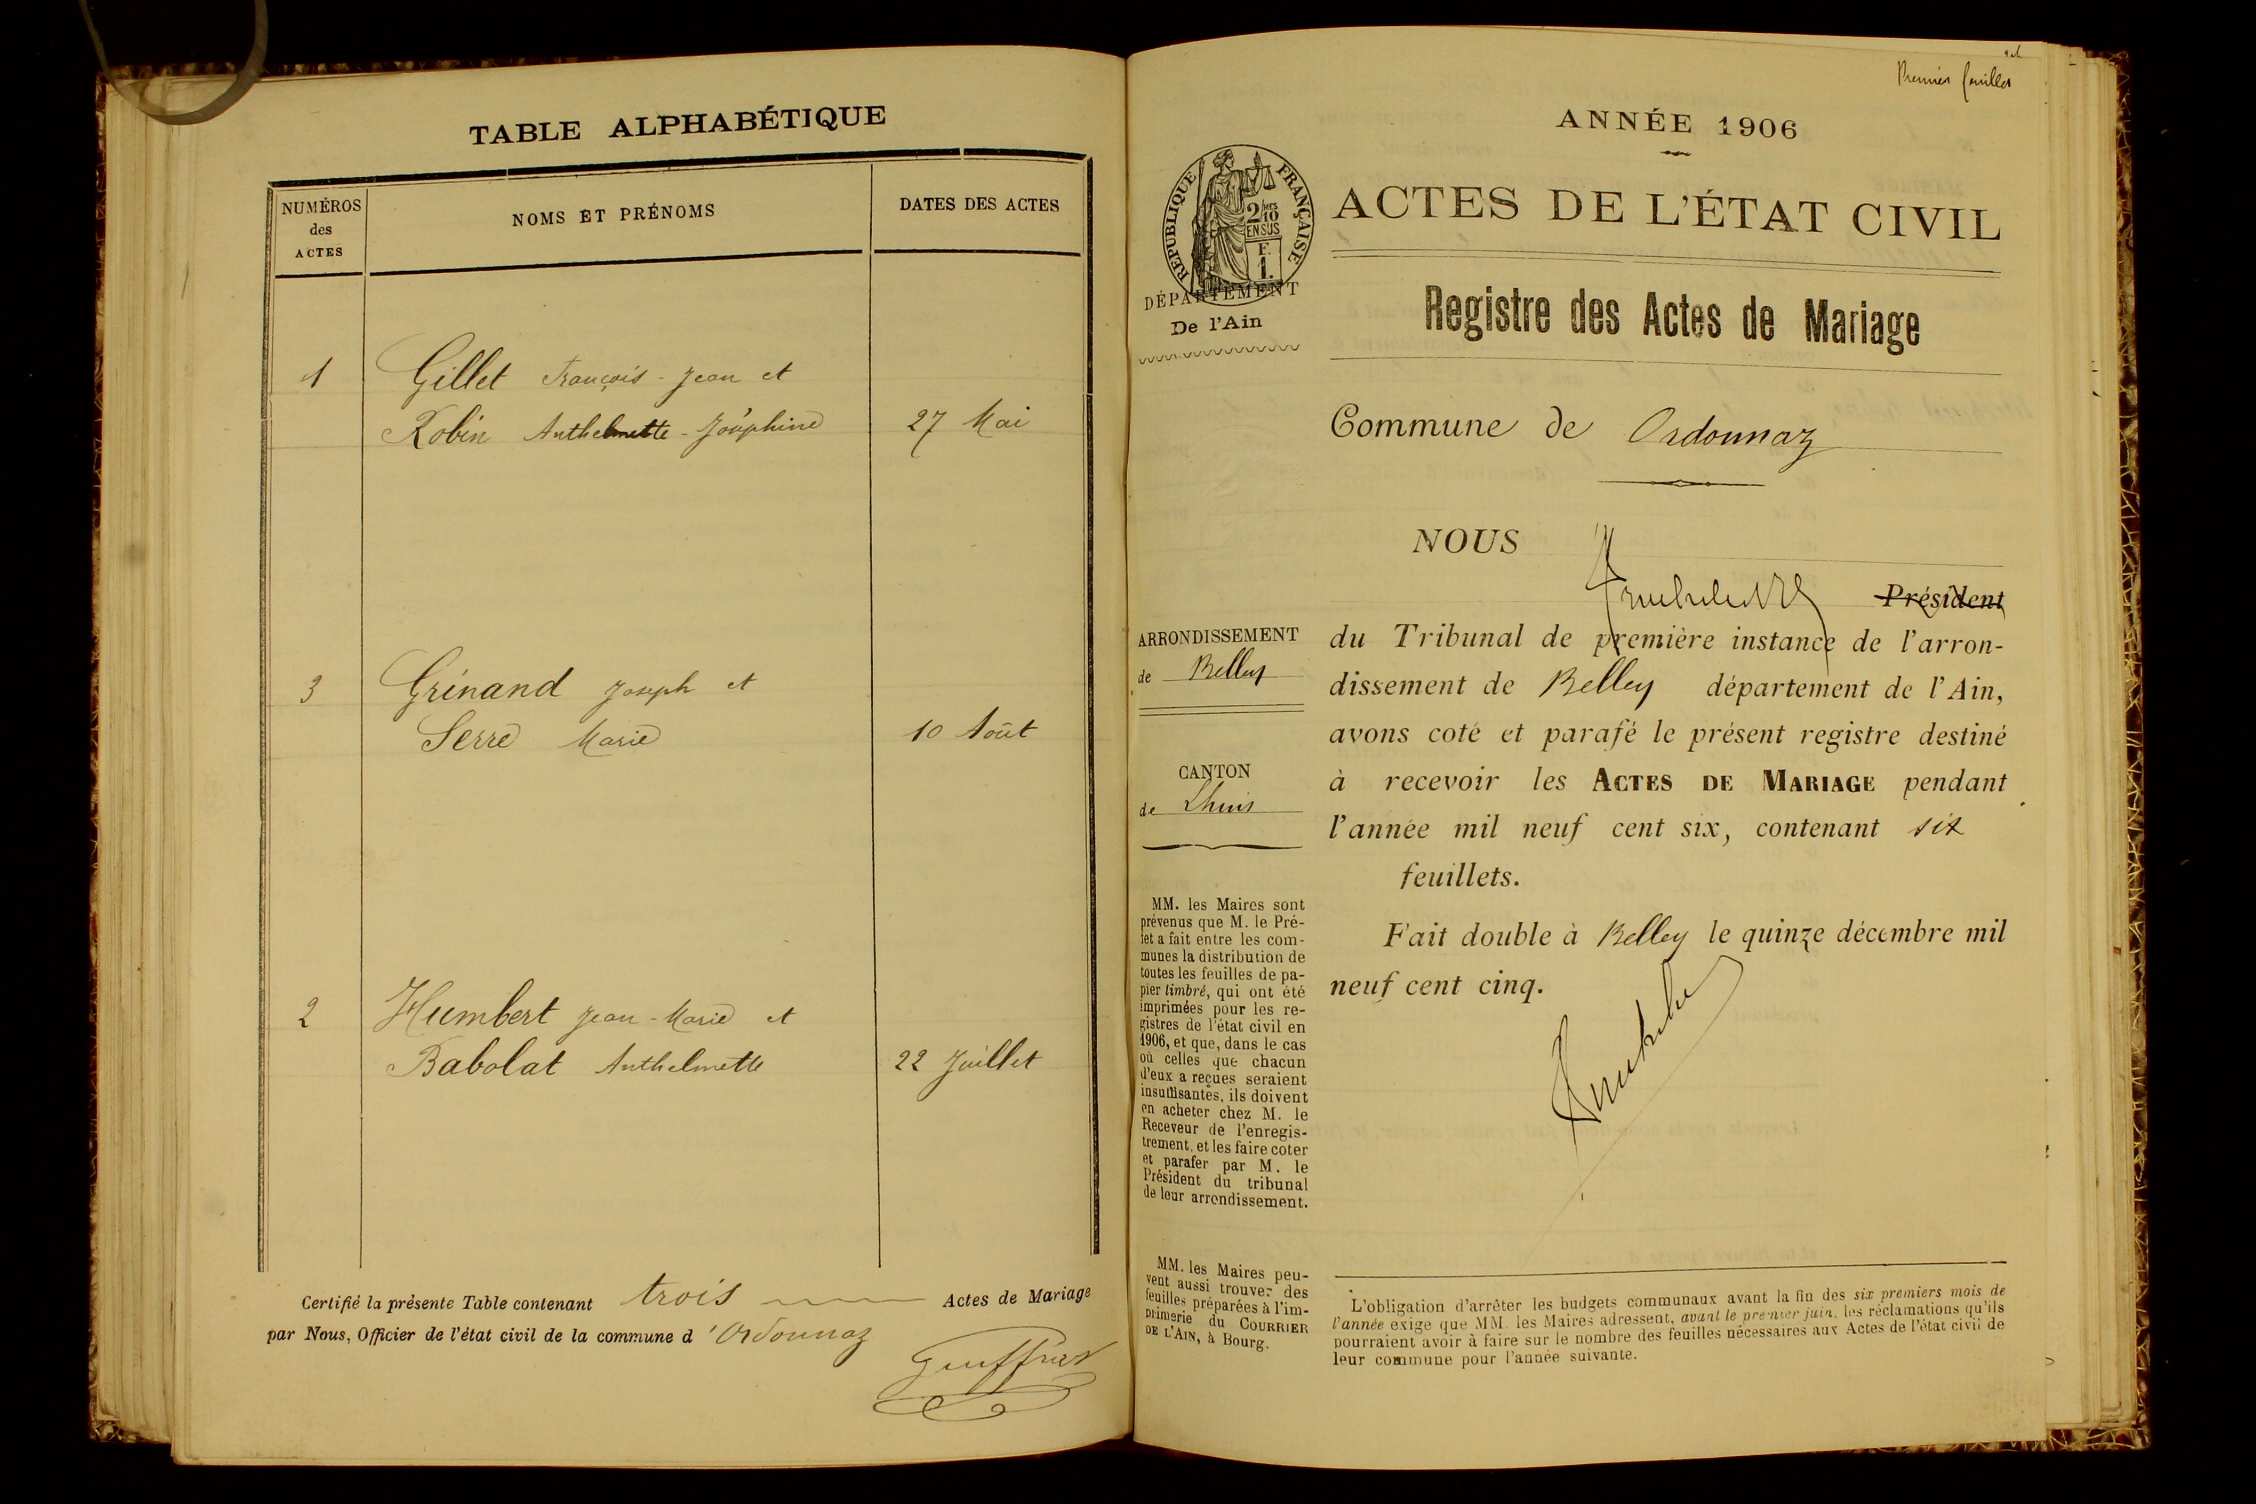 TABLE ALPHABÉTIQUE
NUMÉROS
des
ACTES
NOMS ET PRÉNOMS
DATES DES ACTES
1
Gillet François-Jean et
Robin Anthelmette-Joséphine
27 Mai
3
Grinand Joseph et
Serre Marie
10 Août
2
Humbert Jean-Marie et
Babolat Anthelmette
22 Juillet
Certifié la présente Table contenant trois Actes de Mariage
par Nous, Officier de l'état civil de la commune d'Ordonnaz
Premier feuillet
ANNÉE 1906
RÉPUBLIQUE FRANÇAISE
2/10
EN SUS
F.
1.
DÉPARTEMENT
De l'Ain
ACTES DE L'ÉTAT CIVIL
Registre des Actes de Mariage
Commune de Ordonnaz
NOUS
Président
ARRONDISSEMENT
de Belley
CANTON
de Lhuis
du Tribunal de première instance de l'arron-
dissement de Belley département de l'Ain,
avons coté et parafé le présent registre destiné
à recevoir les ACTES DE MARIAGE pendant
l'année mil neuf cent six, contenant six
feuillets.
Fait double à Belley le quinze décembre mil
neuf cent cinq.
MM. les Maires sont
prévenus que M. le Pré-
fet a fait entre les com-
munes la distribution de
toutes les feuilles de pa-
pier timbré, qui ont été
imprimées pour les re-
gistres de l'état civil en
1906, et que, dans le cas
où celles que chacun
d'eux a reçues seraient
insuffisantes, ils doivent
en acheter chez M. le
Receveur de l'enregis-
trement, et les faire coter
et parafer par M. le
Président du tribunal
de leur arrondissement.
MM. les Maires peu-
vent aussi trouver des
feuilles préparées à l'im-
primerie du COURRIER
DE L'AIN, à Bourg.
L'obligation d'arrêter les budgets communaux avant la fin des six premiers mois de
l'année exige que MM. les Maires adressent, avant le premier juin, les réclamations qu'ils
pourraient avoir à faire sur le nombre des feuilles nécessaires aux Actes de l'état civil de
leur commune pour l'année suivante.